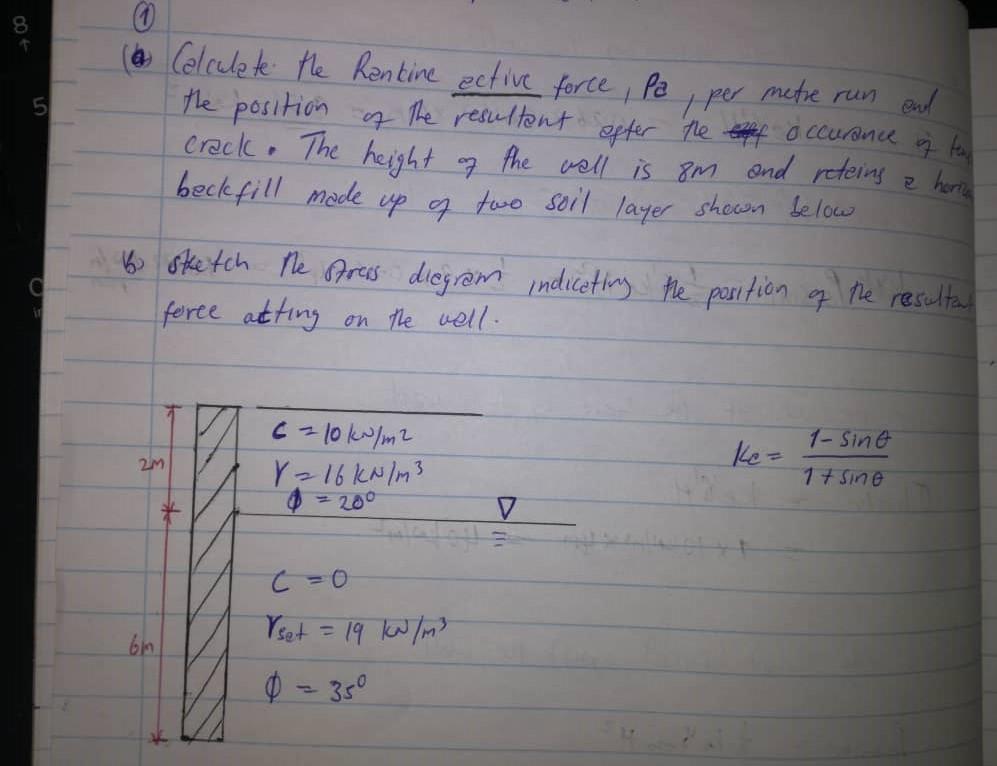 ①
8
↑
(a) Calculate the Rankine active force, Pa, per metre run and
5
the position of the resultant after the occurance of
crack. The height of the wall is 8m and retains a
backfill made up of two soil layer shown below
b) sketch the stress diagram indicating the position of the resultant
0
force acting on the wall.
C = 10 kN/m2
2m
γ = 16 kN/m3
ϕ = 20°
Ka = 1 - sinθ / 1 + sinθ
C = 0
6m
γsat = 19 kN/m3
ϕ = 35°